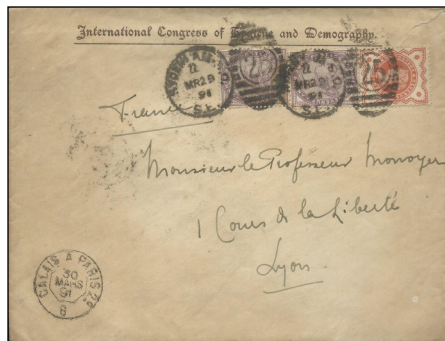 International Congress of Hygiene and Demography.
MR 29
91
S.E.
25
MR 29
91
S.E.
25
France
Monsieur le Professeur Monoyer
1 Cours de la Liberté
Lyon.
CALAIS A PARIS
30
MARS
91